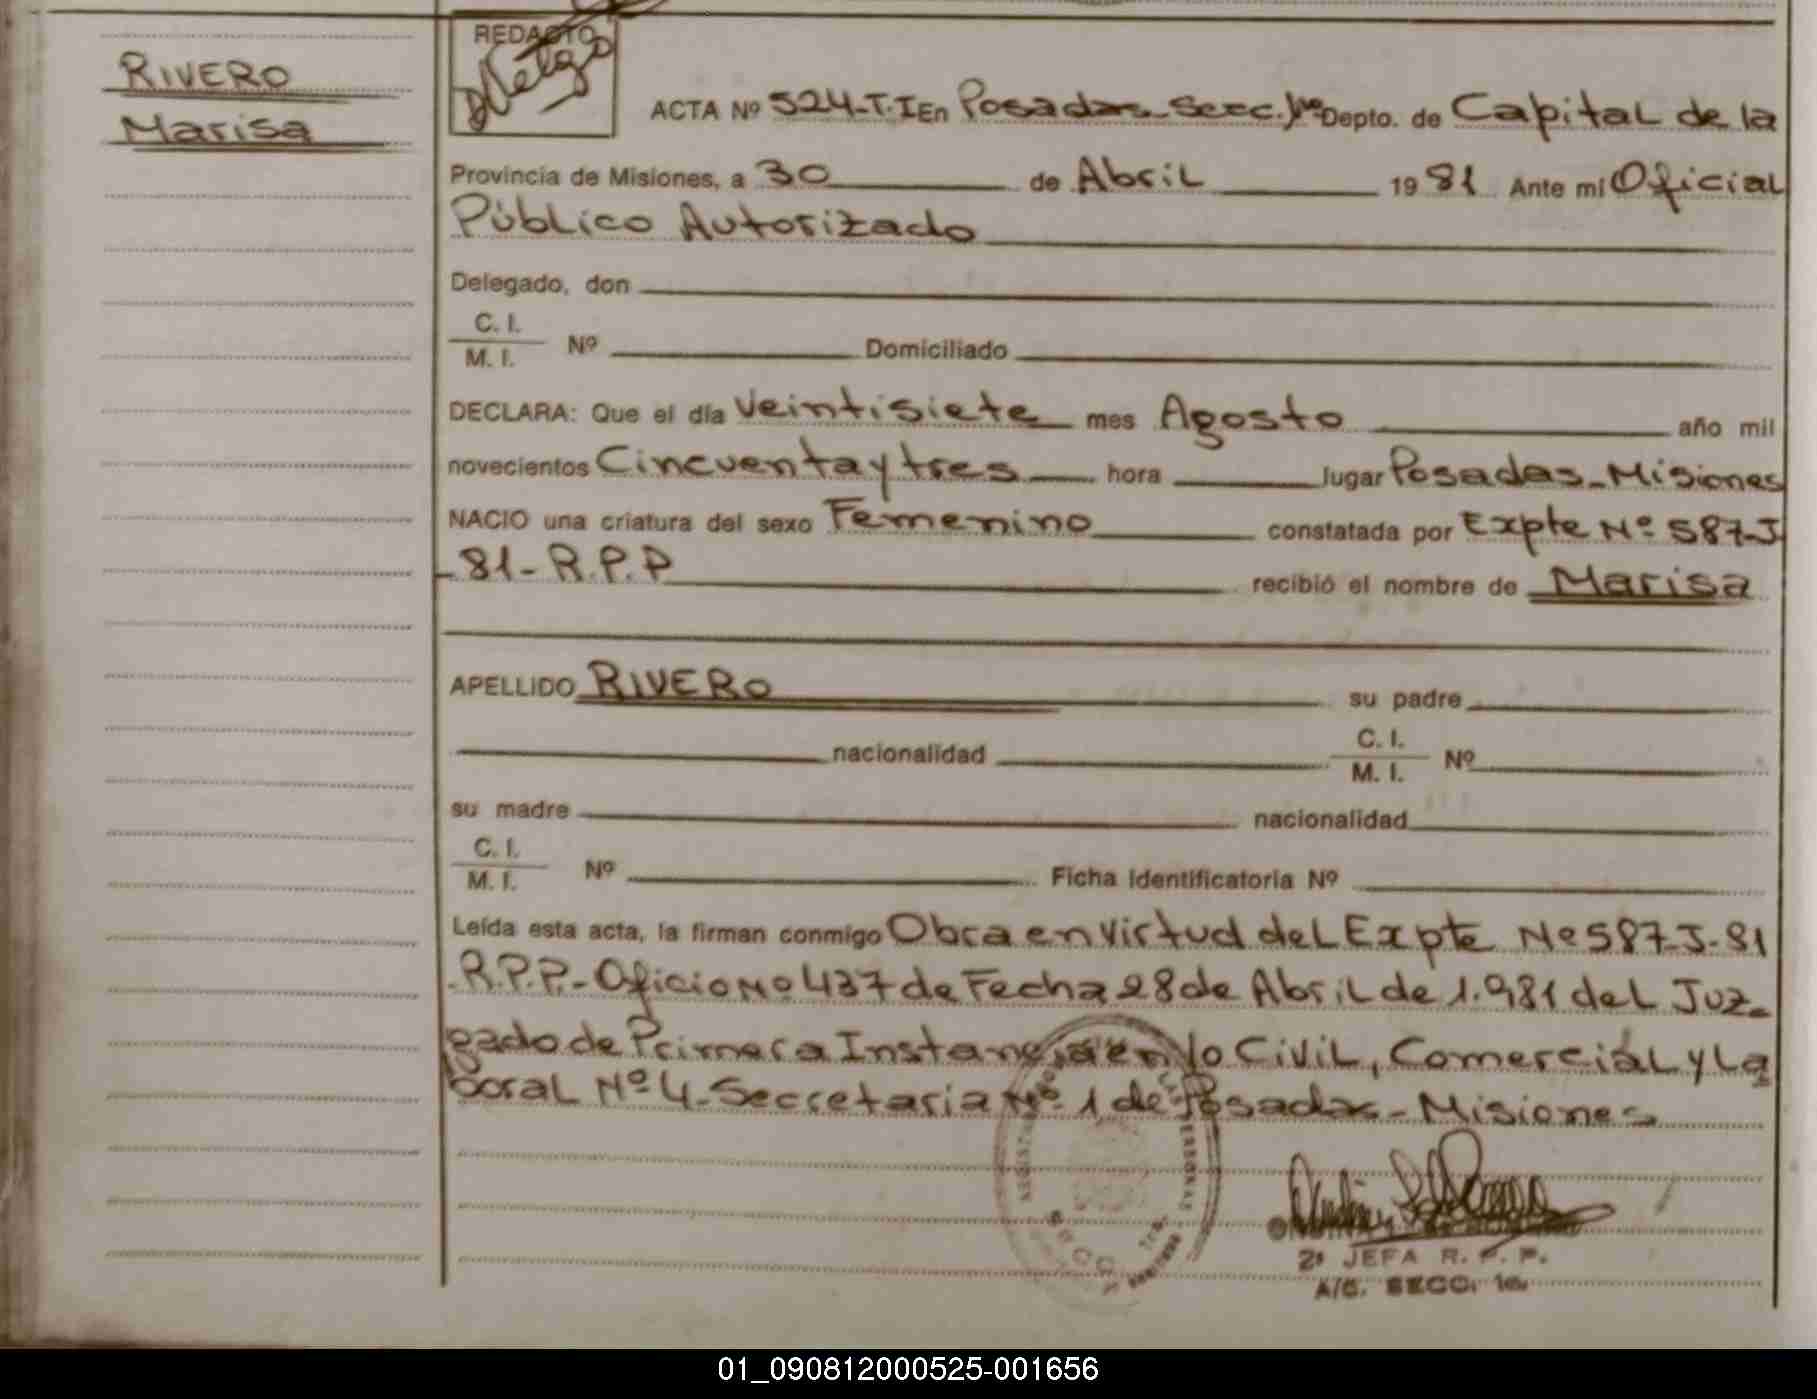 RIVERO
Marisa
REDACTO
ACTA Nº 524-T.I En Posadas Secc. 1ª Depto. de Capital de la
Provincia de Misiones, a 30 de Abril 1981 Ante mí Oficial
Público Autorizado
Delegado, don
C. I.
M. I. Nº Domiciliado
DECLARA: Que el día veintisiete mes Agosto año mil
novecientos Cincuenta y tres hora lugar Posadas-Misiones
NACIO una criatura del sexo Femenino constatada por Expte Nº 587-J
-81-R.P.P recibió el nombre de Marisa
APELLIDO RIVERO su padre
nacionalidad C. I.
M. I. Nº
su madre nacionalidad
C. I.
M. I. Nº Ficha Identificatoria Nº
Leída esta acta, la firman conmigo Obra en virtud del Expte Nº 587-J-81
-R.P.P.- Oficio Nº 437 de Fecha 28 de Abril de 1.981 del Juz-
gado de Primera Instancia en lo Civil, Comercial y La
boral Nº 4-Secretaria Nº 1 de Posadas-Misiones
2ª JEFA R. P. P.
A/C. SECC. 1a.
01_090812000525-001656